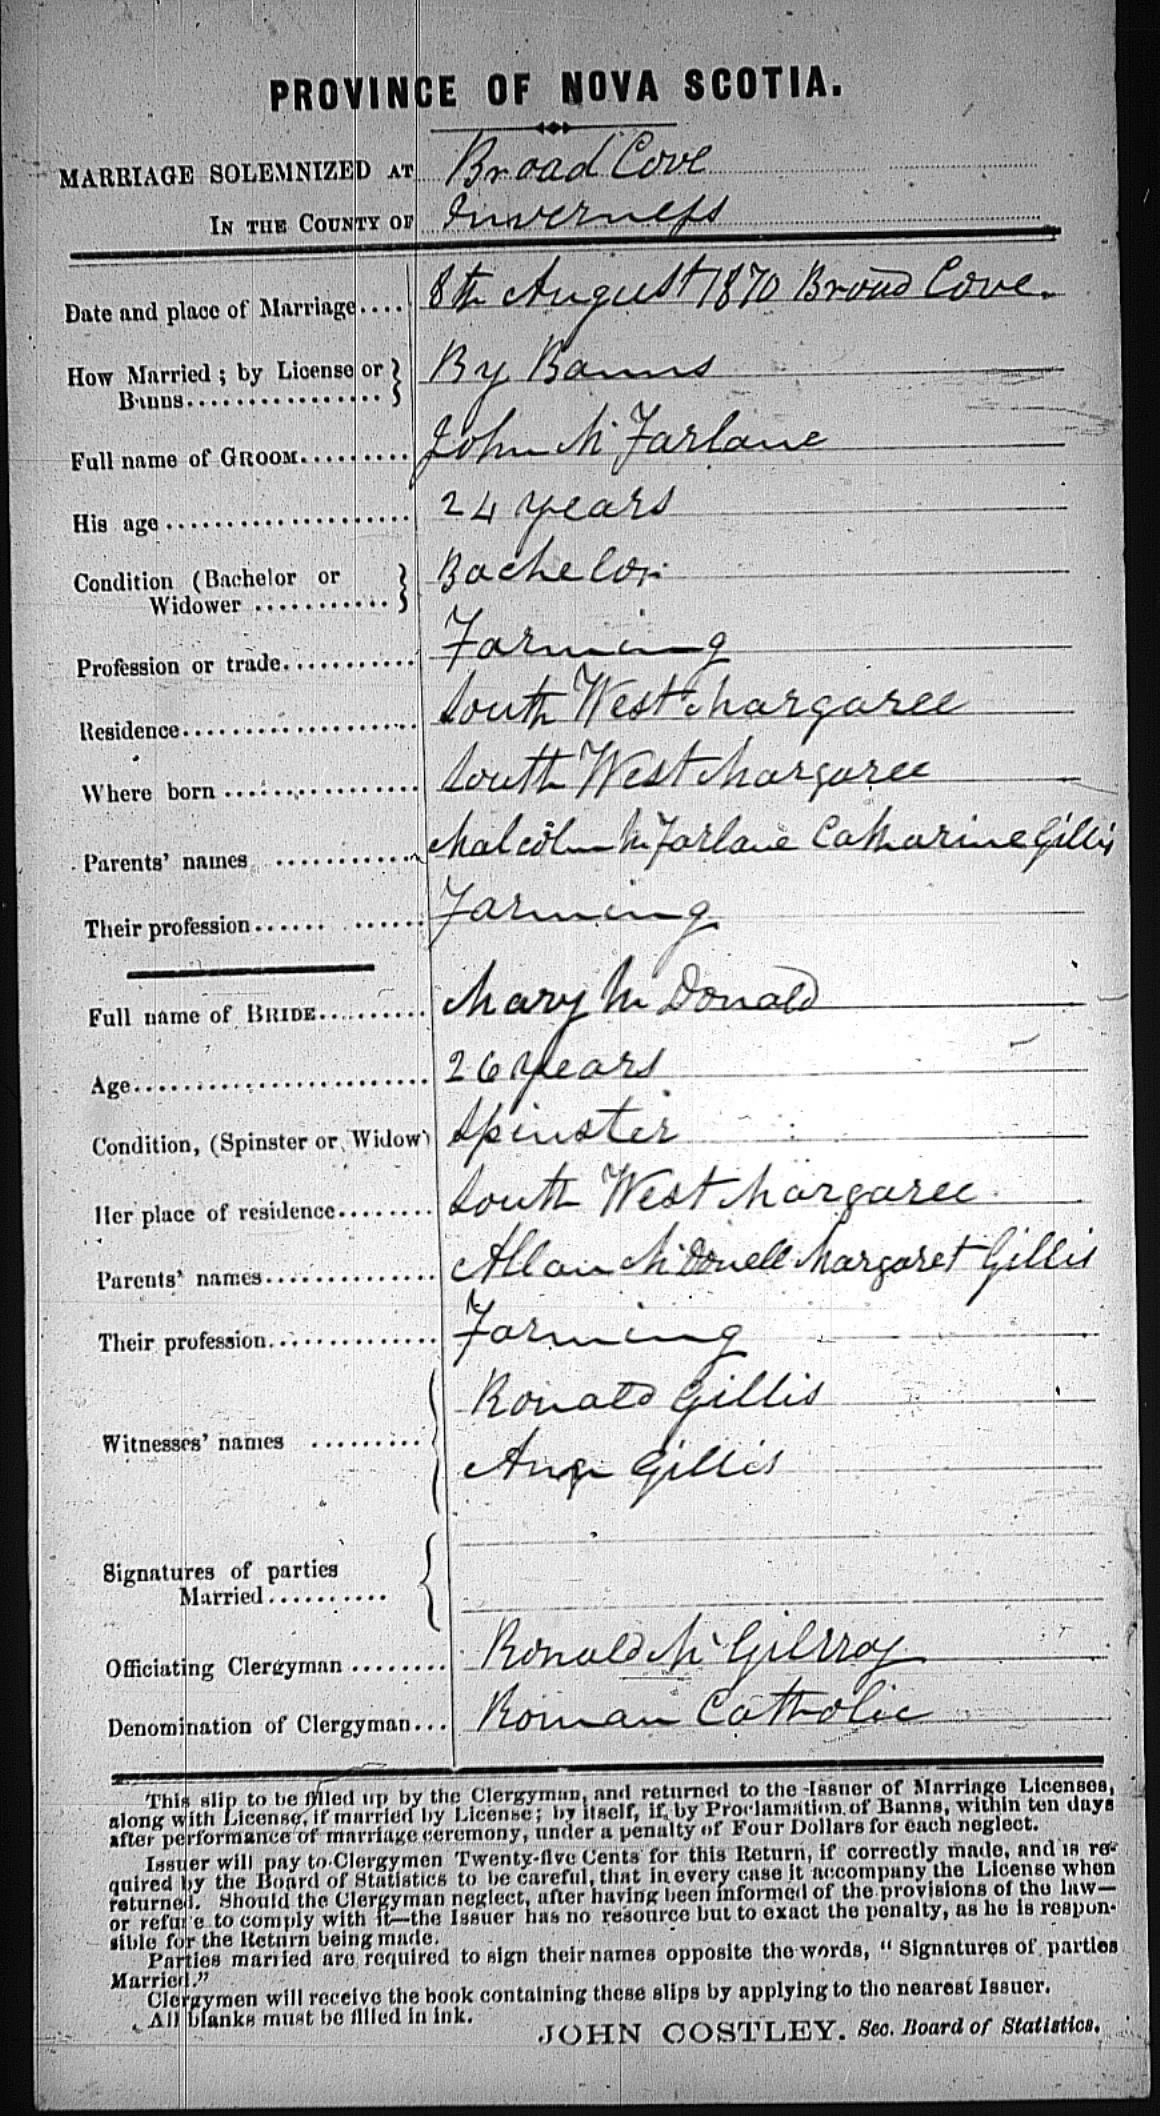 PROVINCE OF NOVA SCOTIA.
MARRIAGE SOLEMNIZED AT Broad Cove
IN THE COUNTY OF Inverness
Date and place of Marriage.... 8th August 1870 Broad Cove.
How Married ; by License or } By Banns
Banns................
Full name of GROOM......... John McFarlane
His age.................... 24 years
Condition (Bachelor or } Bachelor
Widower ...........
Profession or trade........... Farming
Residence.................. South West Margaree
Where born ................ South West Margaree
Parents' names ............ Malcolm McFarlane Catharine Gillis
Their profession...... ...... Farming
Full name of BRIDE......... Mary McDonald
Age....................... 26 years
Condition, (Spinster or Widow) Spinster
Her place of residence........ South West Margaree
Parents' names.............. Allan McDonell Margaret Gillis
Their profession.............. Farming
Ronald Gillis
Witnesses' names .........
Gillis
Signatures of parties
Married..........
Officiating Clergyman ........ Ronald McGilvray
Denomination of Clergyman... Roman Catholic
This slip to be filled up by the Clergyman, and returned to the Issuer of Marriage Licenses,
along with License, if married by License; by itself, if by Proclamation of Banns, within ten days
after performance of marriage ceremony, under a penalty of Four Dollars for each neglect.
Issuer will pay to Clergymen Twenty-five Cents for this Return, if correctly made, and is re-
quired by the Board of Statistics to be careful, that in every case it accompany the License when
returned. Should the Clergyman neglect, after having been informed of the provisions of the law—
or refuse to comply with it—the Issuer has no resource but to exact the penalty, as he is respon-
sible for the Return being made.
Parties married are required to sign their names opposite the words, "Signatures of parties
Married."
Clergymen will receive the book containing these slips by applying to the nearest Issuer.
All blanks must be filled in ink.
JOHN COSTLEY. Sec. Board of Statistics.